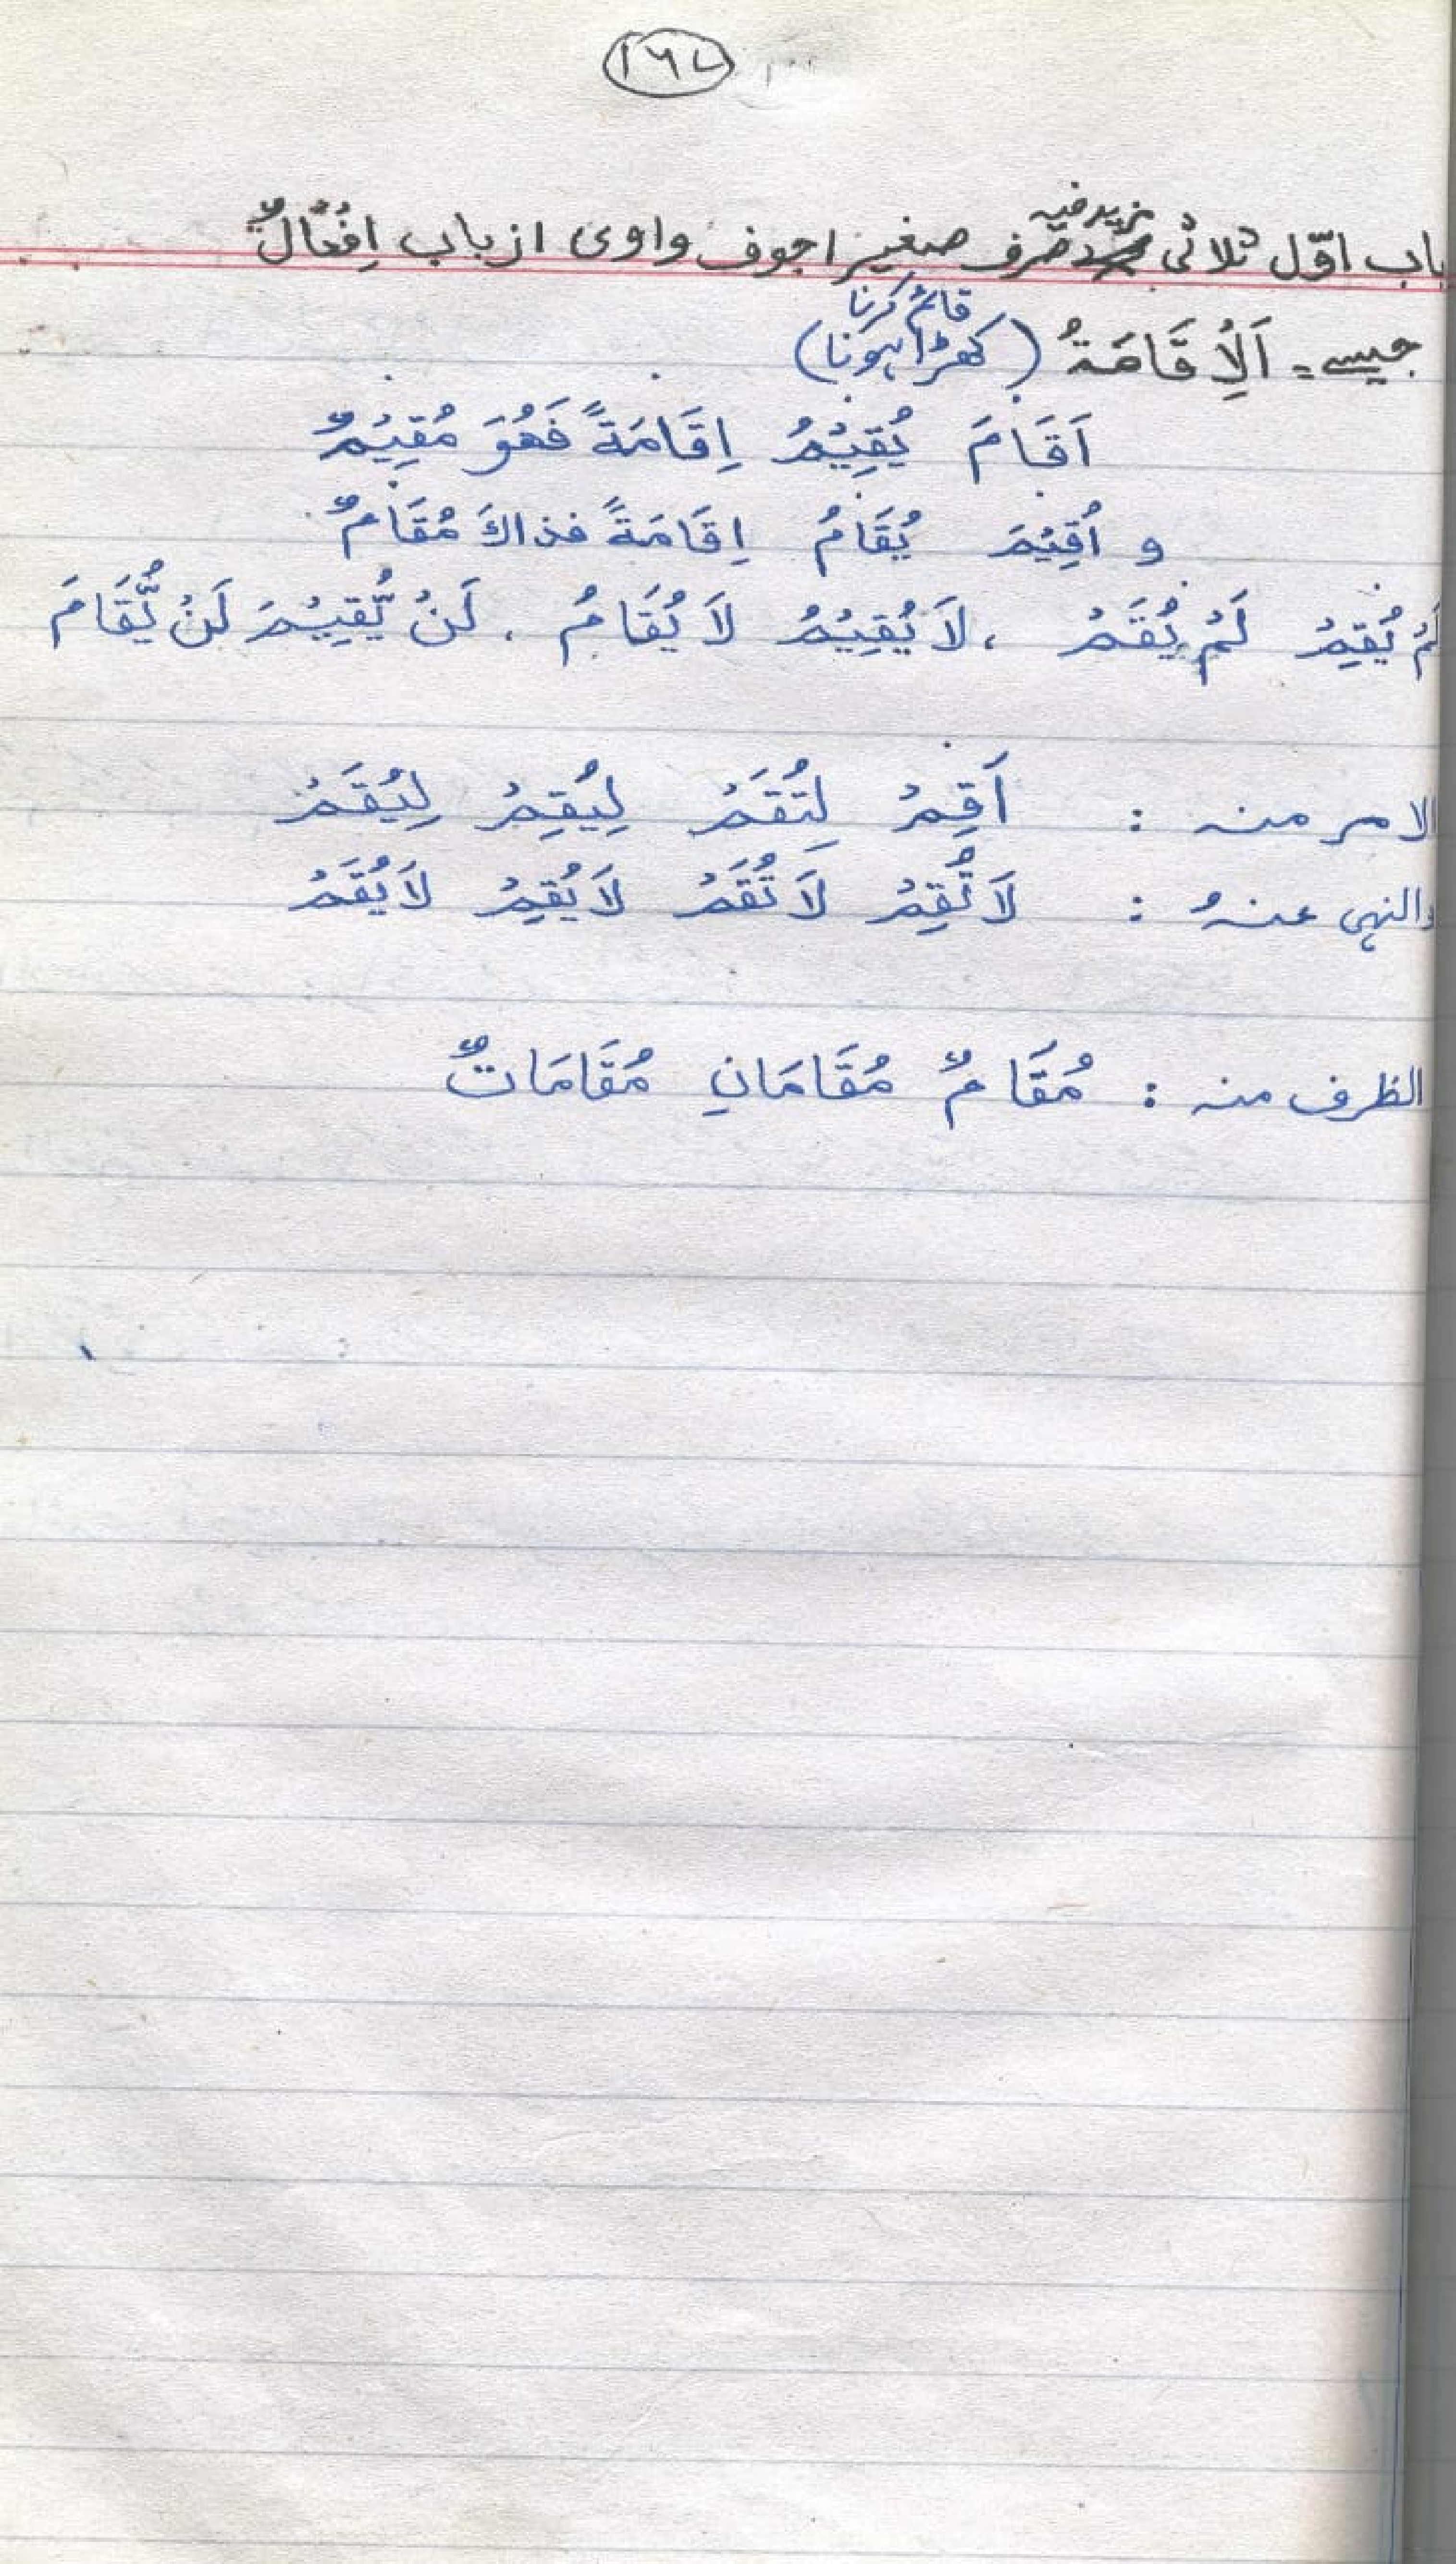 ۱۶۷
باب اوّل ثلاثی مزید فیہ صرف صغیر اجوف واوی از باب اِفْعَالٌ
جیسے = اَلْاِقَامَۃُ (کھڑا ہونا) قائم کرنا
اَقَامَ یُقِیْمُ اِقَامَۃً فَھُوَ مُقِیْمٌ
و اُقِیْمَ یُقَامُ اِقَامَۃً فذاكَ مُقَامٌ
لَمْ یُقِمْ لَمْ یُقَمْ ، لَا یُقِیْمُ لَا یُقَامُ ، لَنْ یُّقِیْمَ لَنْ یُّقَامَ
الامر منہ : اَقِمْ لِتُقَمْ لِیُقِمْ لِیُقَمْ
والنہی عنہُ : لَا تُقِمْ لَا تُقَمْ لَا یُقِمْ لَا یُقَمْ
الظرف منہ : مُقَامٌ مُقَامَانِ مُقَامَاتٌ